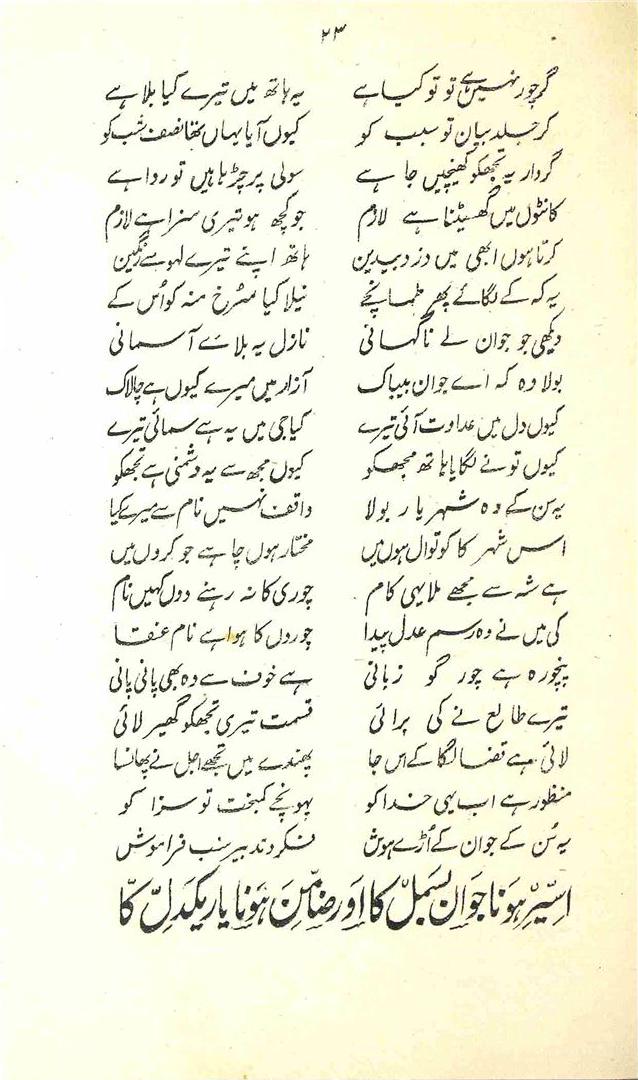 ۲۳
گر چور نہیں ہے تو تو کیا ہے یہ ہاتھ میں تیرے کیا بلا ہے
کر جلد بیان تو سبب کو کیوں آیا یہاں تھا نصف شب کو
گردار یہ تجھکو کھینچیں جا ہے سولی پر چڑہا ہیں تو روا ہے
کانٹوں میں گھسیٹنا ہے لازم جو کچھ ہو تیری سزا ہے لازم
کرتا ہوں ابھی میں دزد بیدین ہاتھ اپنے تیرے لہو سے رنگین
یہ کہ کے لگائے پھر طمانچے نیلا کیا سُرخ منہ کو اُس کے
دیکھی جو جوان نے ناگہانی نازل یہ بلاے آسمانی
بولا وہ کہ اے جوان بیباک آزار میں میرے کیوں ہے چالاک
کیوں دل میں عداوت آئی تیرے کیا جی میں یہ ہے سمائی تیرے
کیوں تونے لگایا ہاتھ مجھکو کیوں مجھ سے یہ دشمنی ہے تجھکو
یہ سن کے وہ شہر یار بولا واقف نہیں نام سے میرے کیا
اس شہر کا کوتوال ہوں میں مختار ہوں چاہے جو کروں میں
ہے شہ سے مجھے ملا یہی کام چوری کا نہ رہنے دوں کہیں نام
کی میں نے وہ رسم عدل پیدا چوروں کا ہوا ہے نام عنقا
پنچورہ ہے چور گو زبانی ہے خوف سے وہ بھی پانی پانی
تیرے طالع نے کی برائی قسمت تیری تجھکو گھیر لائی
لائی ہے قضا لگا کے اس جا پھندے میں تجھے اجل نے پھانسا
منظور ہے اب یہی خدا کو پہونچے کمبخت تو سزا کو
یہ سُن کے جوان کے اُڑے ہوش فکر و تدبیر سب فراموش
اسیر ہونا جوان بسمل کا اور ضامن ہونا یار یکدل کا